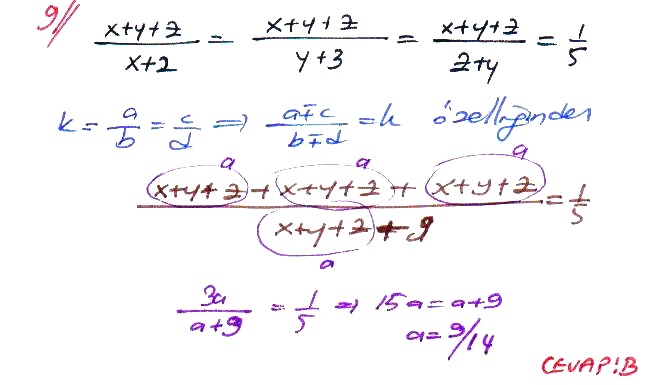 9//
(x+y+z)/(x+2) = (x+y+z)/(y+3) = (x+y+z)/(z+4) = 1/5
k = a/b = c/d ⇒ (a∓c)/(b∓d) = k özelliğinden
a a a
((x+y+z)+(x+y+z)+(x+y+z))/(x+y+z+9) = 1/5
a
3a/(a+9) = 1/5 ⇒ 15a = a+9
a = 9/14
CEVAP:B